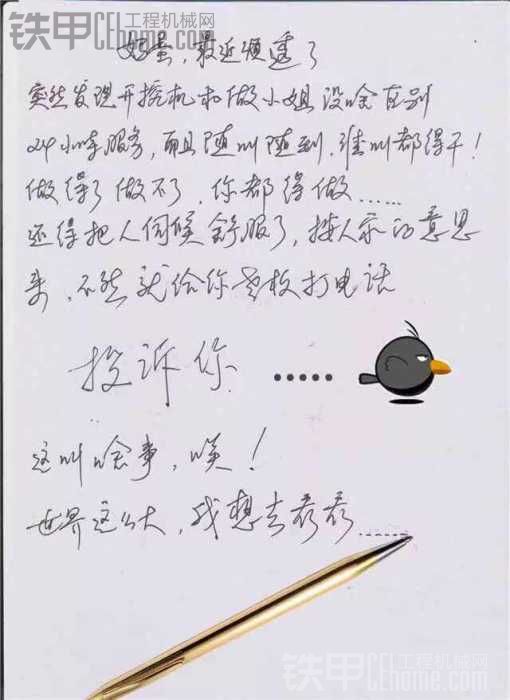 铁甲 工程机械网
CEhome.com
好累，最近烦透了
突然发现开挖机和做小姐没啥区别
24小时服务，而且随叫随到，谁叫都得干！
做得了做不了，你都得做……
还得把人伺候舒服了，按人家的意思
来，不然就给你老板打电话
投诉你 ……
这叫啥事，唉！
世界这么大，我想去看看……
铁甲 工程机械网
CEhome.com